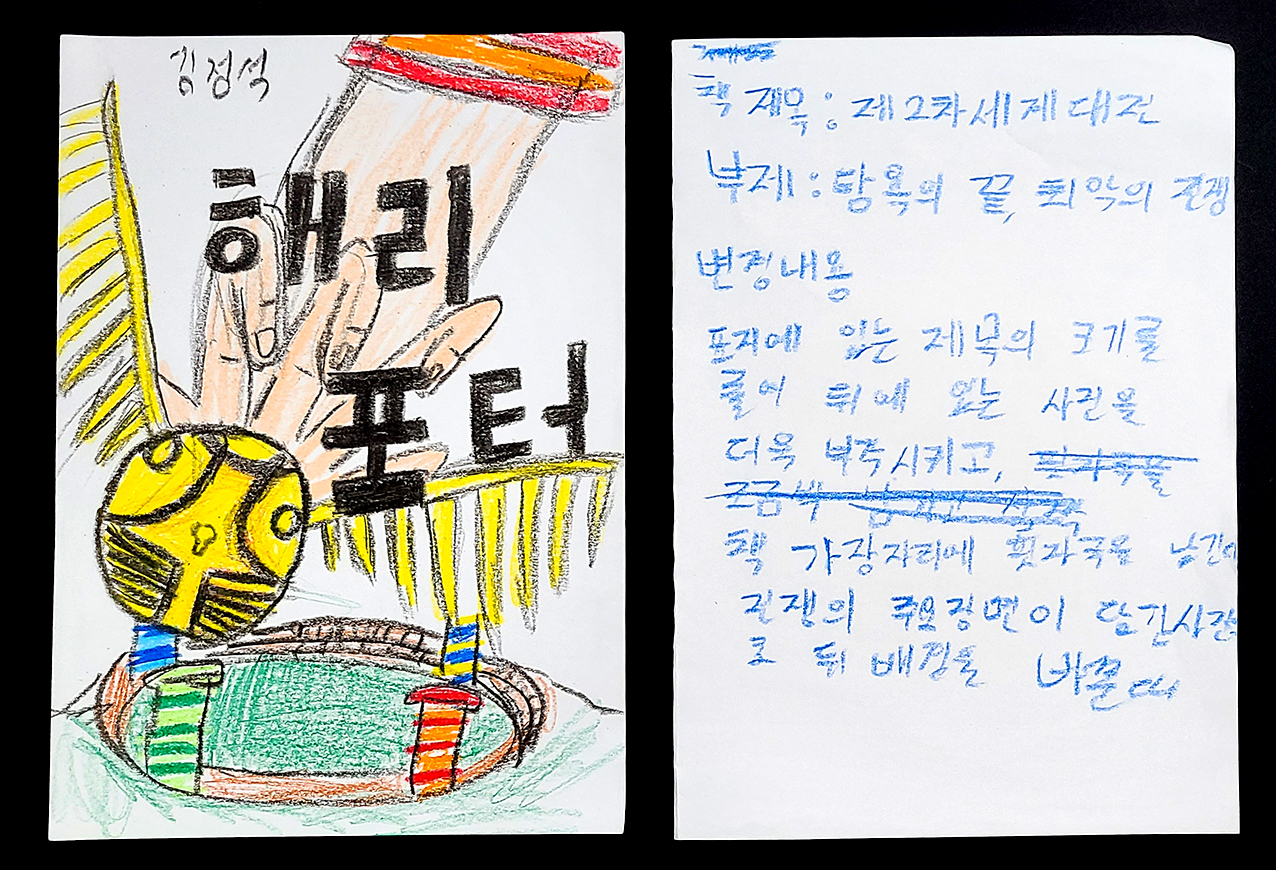 김정석
해리
포터
책 제목 : 제2차세계대전
부제 : 탐욕의 끝, 최악의 전쟁
변경내용
표지에 있는 제목의 크기를
줄여 뒤에 있는 사진을
더욱 부각시키고,
책 가장자리에 핏자국을 남긴
전쟁의 주요장면이 담긴사진
로 뒤 배경을 바꿀